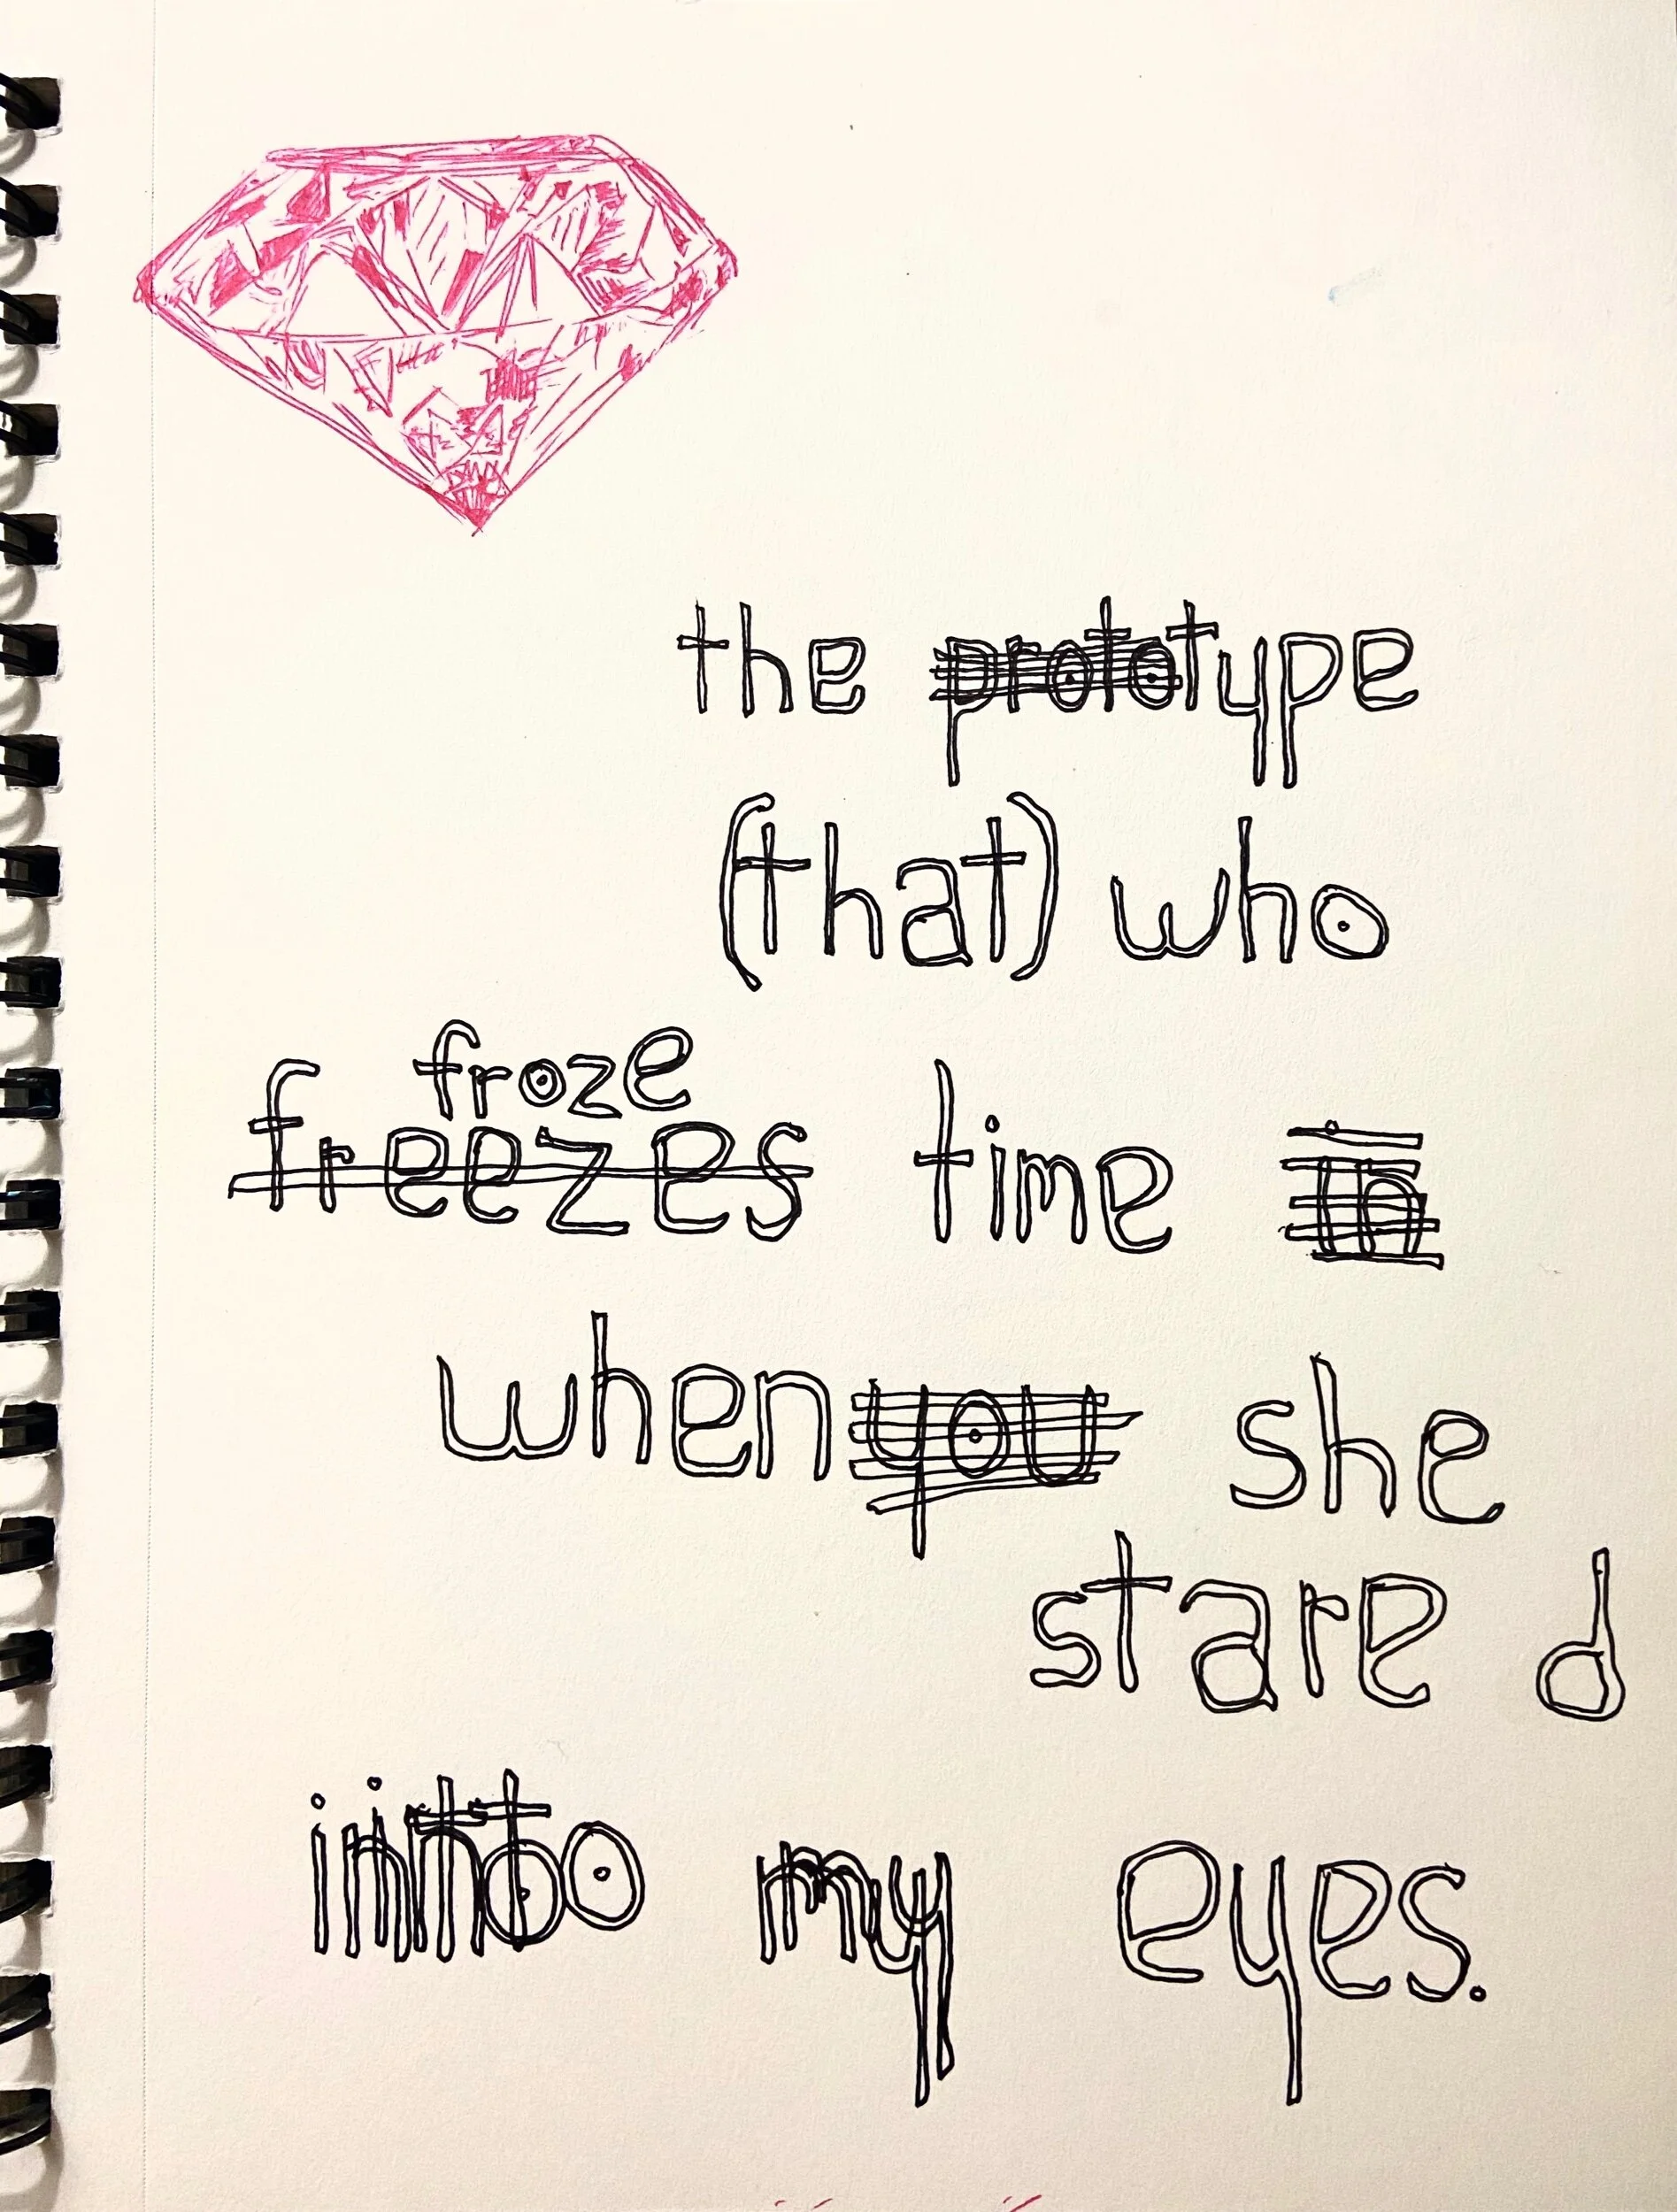 the prototype
(that) who
froze
freezes time in
when you she
stare d
into my eyes.